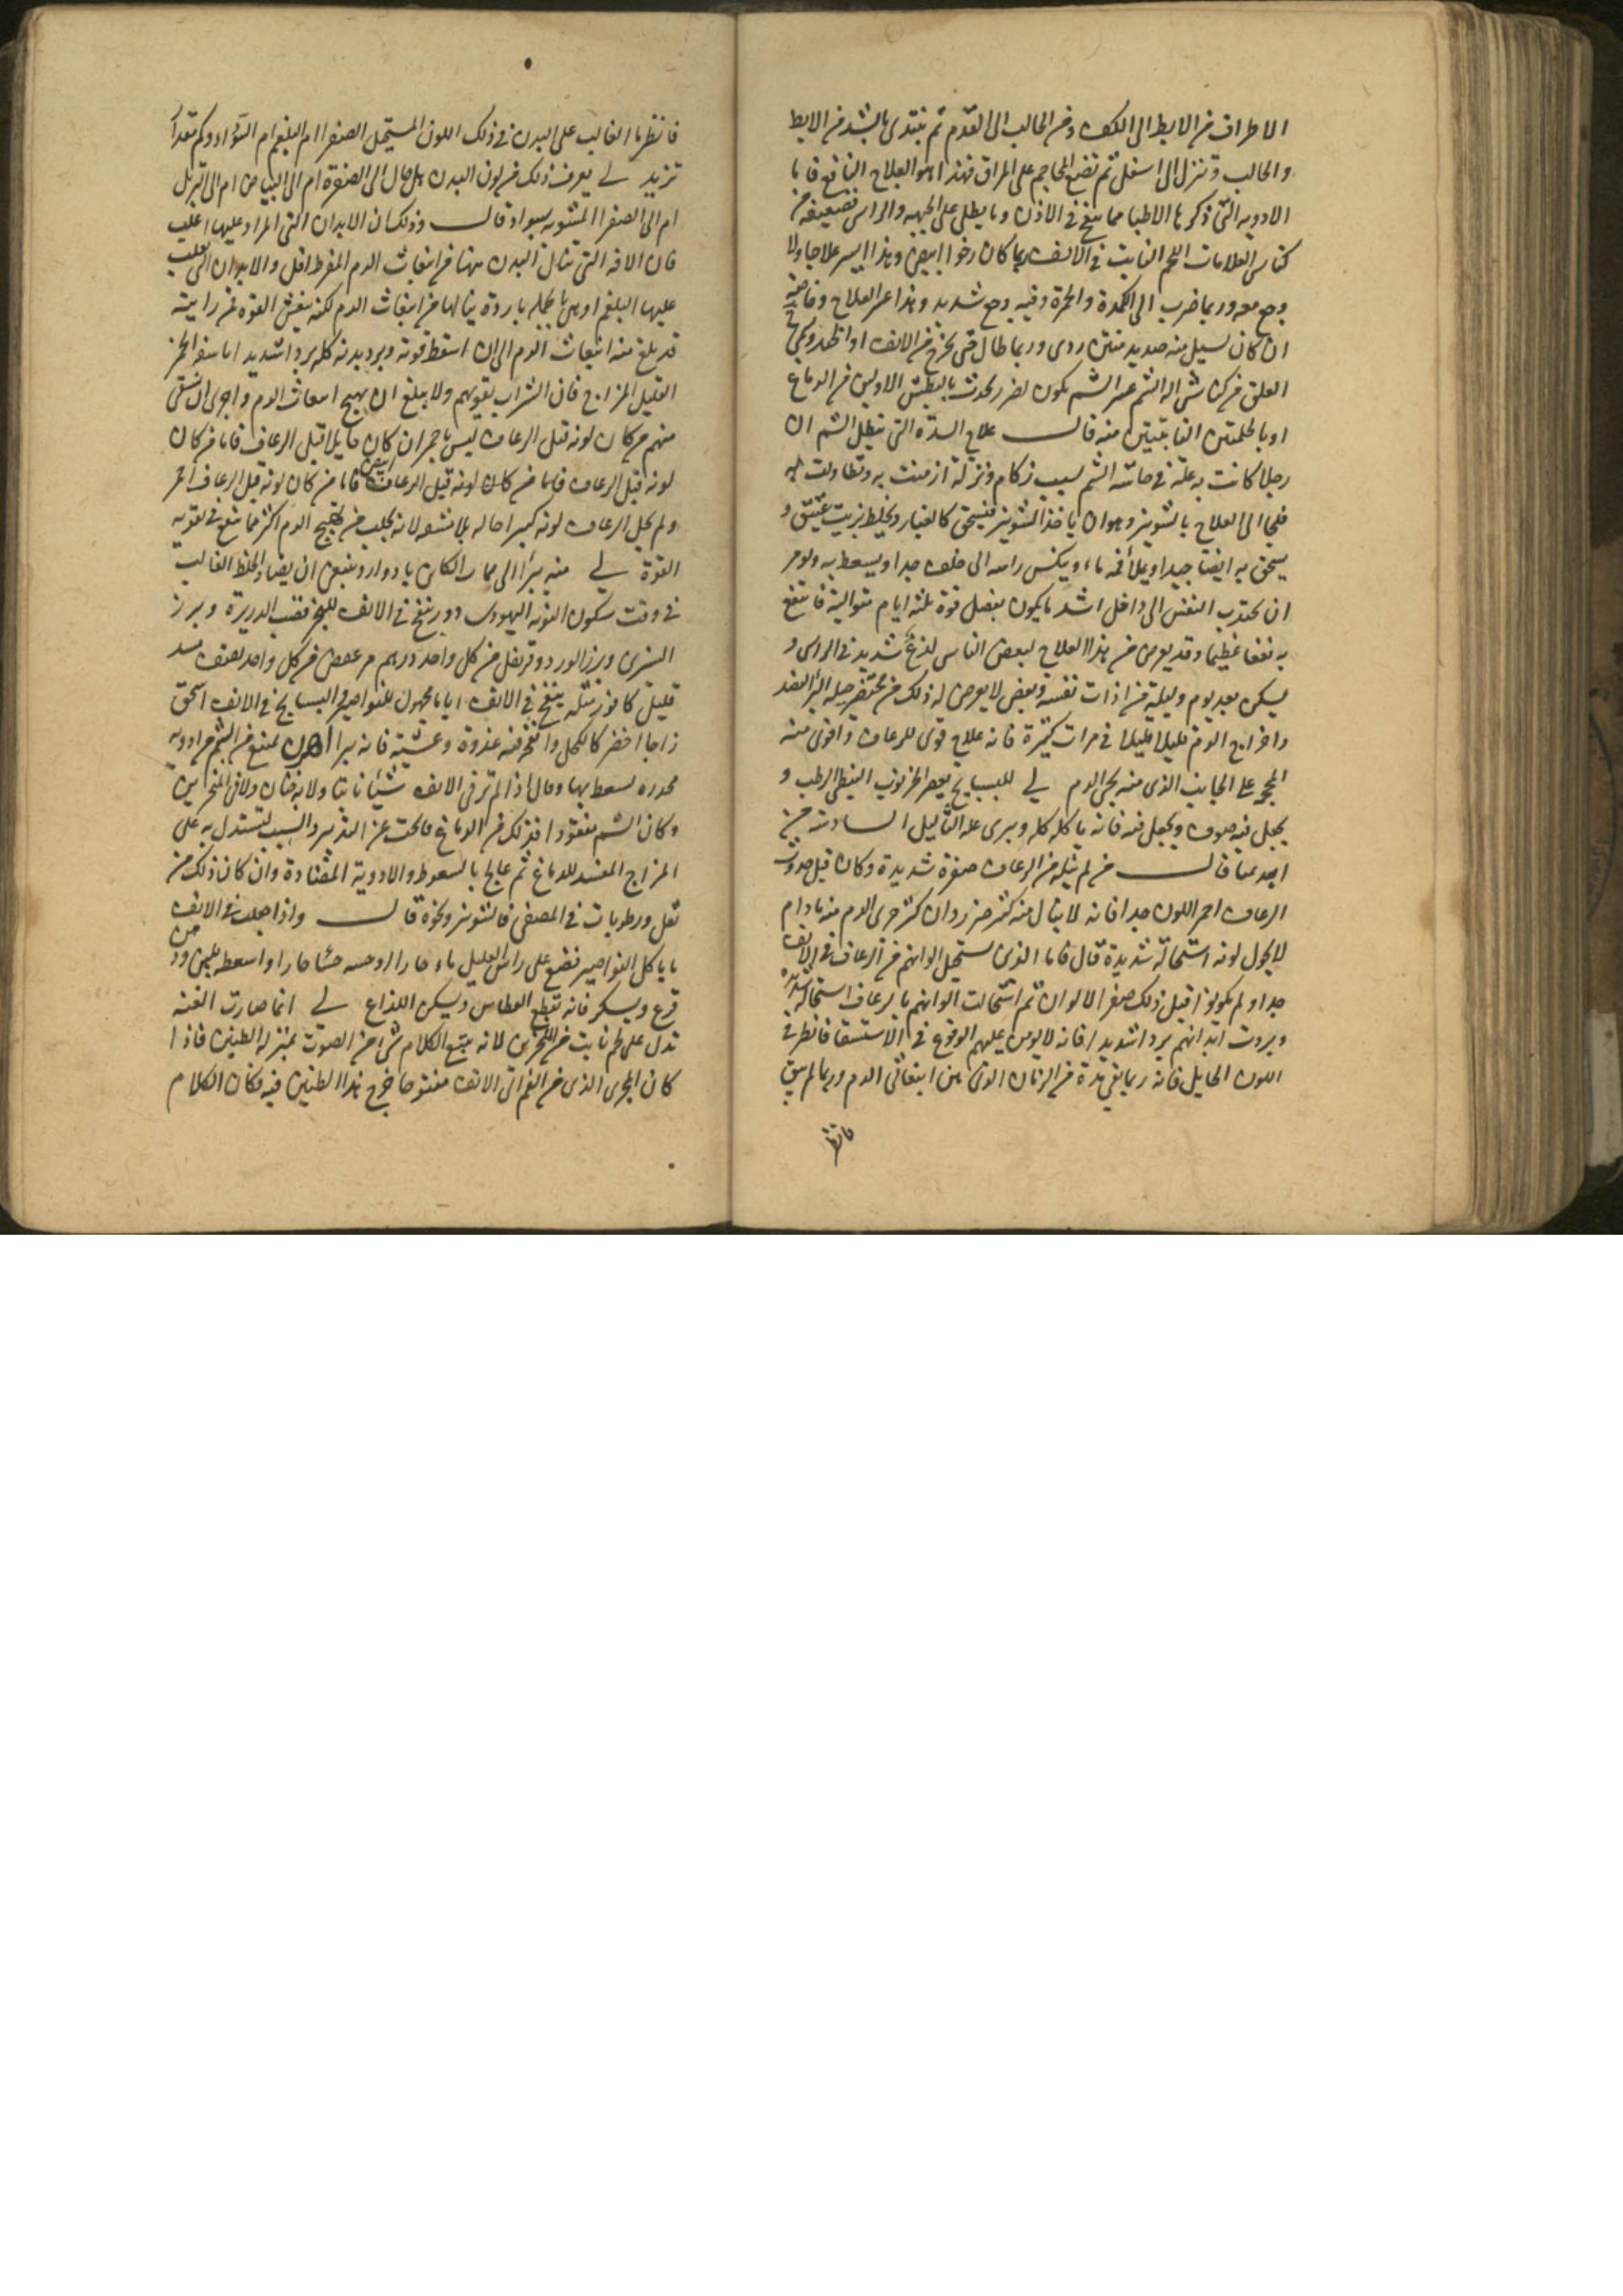 الاطراف من الابط الى الكف ومن الحالب الى القدم ثم يبتدى بالشد من الابط
والحالب وتنزل الى اسفل ثم تضع المحاجم على المراق فهذا هو العلاج النافع فاما
الادويه التى ذكرها الاطبا مما ينفخ فى الاذن وما يطلى على الجبهه والراس فضعيفه من
كناس العلامات اللحم النابت فى الانف ربما كان رخوا ابيض وهذا ايسر علاجا ولا
وجع معه وربما ضرب الى الكمدة والحمرة وفيه وجع شديد وهذا عسر العلاج وخاصة
ان كان يسيل منه صديد منتن ردى وربما طال حتى يخرج من الانف او الى
العلق من كناش الشم عسر الشم يكون لضرر يحدث بالبطنين الاولين من الدماغ
او بالحلمتين النابتتين منه قال علاج السدة التى تبطل الشم ان
رجلا كانت به علة فى حاسة الشم بسبب زكام ونزلة ازمنت به وتطاولت به
فلجا الى العلاج بالشونيز وهو ان ياخذ الشونيز فيسحق كالغبار ويخلط بزيت عتيق و
يسحق به ايضا جيدا ويملأ فمه ماء وينكس راسه الى خلف جدا ويسعط به ويومر
ان يجتذب النفس الى داخل اشد ما يكون بفضل قوة ثلثه ايام متوالية فانتفع
به نفعا عظيما وقد يعرض من هذا العلاج لبعض الناس لذع شديد فى الراس و
يسكن بعد يوم وليلة من ذات نفسه وبعض لا يعرض له ذلك من مختصر حيلة البرء الفصد
واخراج الدم قليلا قليلا فى مرات كثيرة فانه علاج قوى للرعاف واقوى منه
المحجم على الجانب الذى منه يجى الدم لى للبسبايج يعصر الخرنوب النبطى الرطب و
يجعل فيه صوف ويجعل فيه فانه ياكله كله ويبرى على الثآليل السادسة من
ابيديميا قال من لم ينله من الرعاف صفرة شديدة وكان قبل حدوث
الرعاف احمر اللون جدا فانه لا ينال منه كثير ضرر وان كثر جرى الدم منه ما دام
لا يحول لونه استحالة شديدة قال فاما الذى يستحيل الوانهم من الرعاف فى الانف
جدا ولم يكونوا قبل ذلك صفر الالوان ثم استحالت الوانهم بالرعاف استحالة شديدة
وبردت ابدانهم بردا شديدا فانه لا يومن عليهم الوقوع فى الاستسقا فانظر فى
اللون الحايل فانه ربما بقى مدة من الزمان الذى بين انبعاثى الدم وربما لم يبق
فانظر
فانظر ما الغالب على البدن فى ذلك اللون المستحيل الصفرا ام البلغم ام السوداء وكم مقدار
تزيد لى يعرف ذلك من لون البدن هل مال الى الصفرة ام الى البياض ام الى الترهل
ام الى الصفرا المشوبه بسواد قال وذلك ان الابدان التى المرار عليها اغلب
فان الافه التى تنال البدن منها من انبعاث الدم المفرط اقل والابدان التى الغلب
عليها البلغم او هى بالجملة باردة ينالها من انبعاث الدم لكنه ينغش القوة فمن رايته
قد بلغ منه انبعاث الدم الى ان اسقط قوته وبرد بدنه كله بردا شديدا فاسقه الخمر
القليل المزاج فان الشراب يقويهم ولا يبلغ ان يهيج انبعاث الدم واجرى ان يستقى
منهم من كان لونه قبل الرعاف ليس باحمر ان كان حايلا قبل الرعاف فاما من كان
لونه قبل الرعاف فاما من كان لونه قبل الرعاف ابيض فاما من كان لونه قبل الرعاف احمر
ولم يحل الرعاف لونه كبير احاله فلا تسقه لانه يجلب من تهييج الدم اكثر مما ينفع فى تقويه
القوة لى منه يبرا الى الكائن بادوار وينبغى ان يضاد الخلط الغالب
فى وقت سكون النوبه اليهودى دور ينفخ فى الانف للبخر قصب الذريرة وبرز
النسرين وبرز الورد وقرنفل من كل واحد درهم مر عفص من كل واحد نصف مسك
قليل كافور مثله ينفخ فى الانف اياما مجهول للنواصير فى البسبايج فى الانف اسحق
زاجا اخضر كالكحل وانفخ منه غدوة وعشية فانه يبرا اهرن يمنع من الشم من ادويه
مخدره يسعط بها وقال اذا لم تر فى الانف شيئا نابتا ولا به خنان ولا فى المنخرين
وكان الشم مفقودا فذلك من الدماغ فابحث عن التدبير والسبب لتستدل به على
المزاج المفسد للدماغ ثم عالج بالسعوط والادوية المضادة وان كان ذلك من
ثقل ورطوبات فى المصفى فالشونيز ونحوه قال واذا جعلت فى الانف
ما ياكل النواصير فضع على راس العليل ماء حارا او حسه حشا حارا واسعطه بلبن ودهن
قرع وبسكر فانه يقطع العطاس ويسكن اللذاع لى انما صارت الغنه
تدل على لحم نابت من المنخرين لانه يتبع الكلام شى من الصوت بمنزلة الطنين فاذا
كان المجرى الذى من الفم الى الانف مفتوحا خرج هذا الطنين فيه فكان الكلام